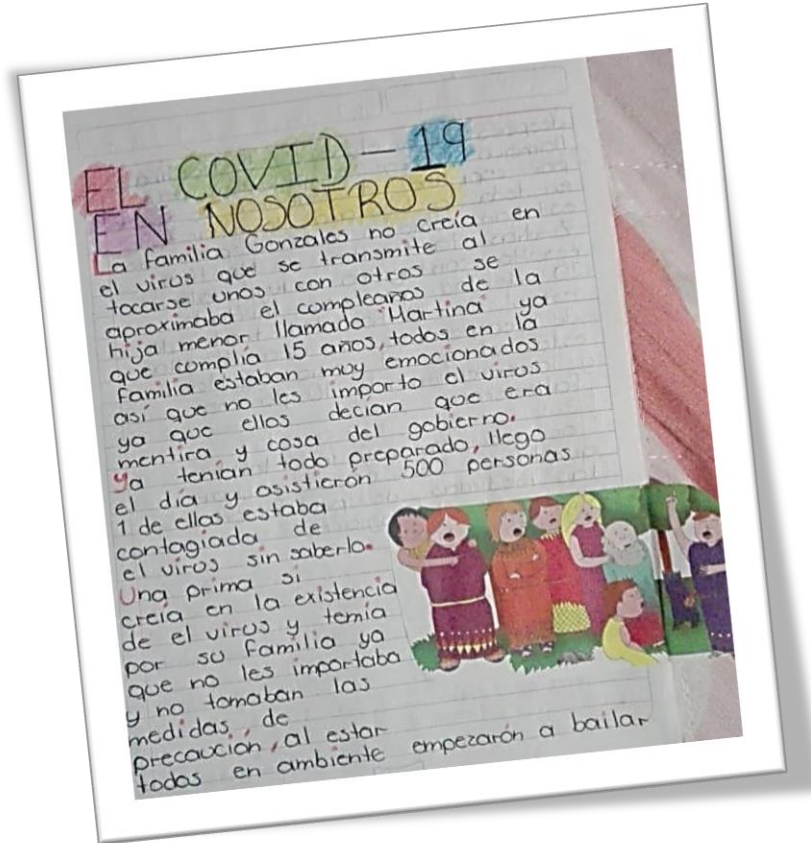 EL COVID-19
EN NOSOTROS
La familia Gonzales no creía en
el virus que se transmite al
tocarse unos con otros se
aproximaba el compleaños de la
hija menor llamada "Martina" ya
que complía 15 años, todos en la
familia estaban muy emocionados
así que no les importo el virus
ya que ellos decían que era
mentira y cosa del gobierno.
Ya tenían todo preparado, llego
el día y asistierón 500 personas
1 de ellas estaba
contagiada de
el virus sin saberlo.
Una prima si
creía en la existencia
de el virus y temía
por su familia ya
que no les importaba
y no tomaban las
medidas de
precaución, al estar
todos en ambiente empezarón a bailar